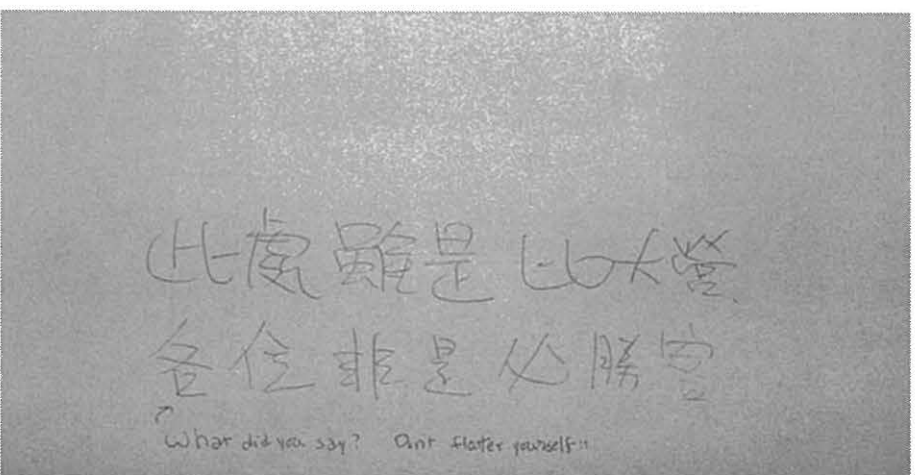 此處雖是比大營
各位非是必勝客
What did you say? Dont flatter yourself!!